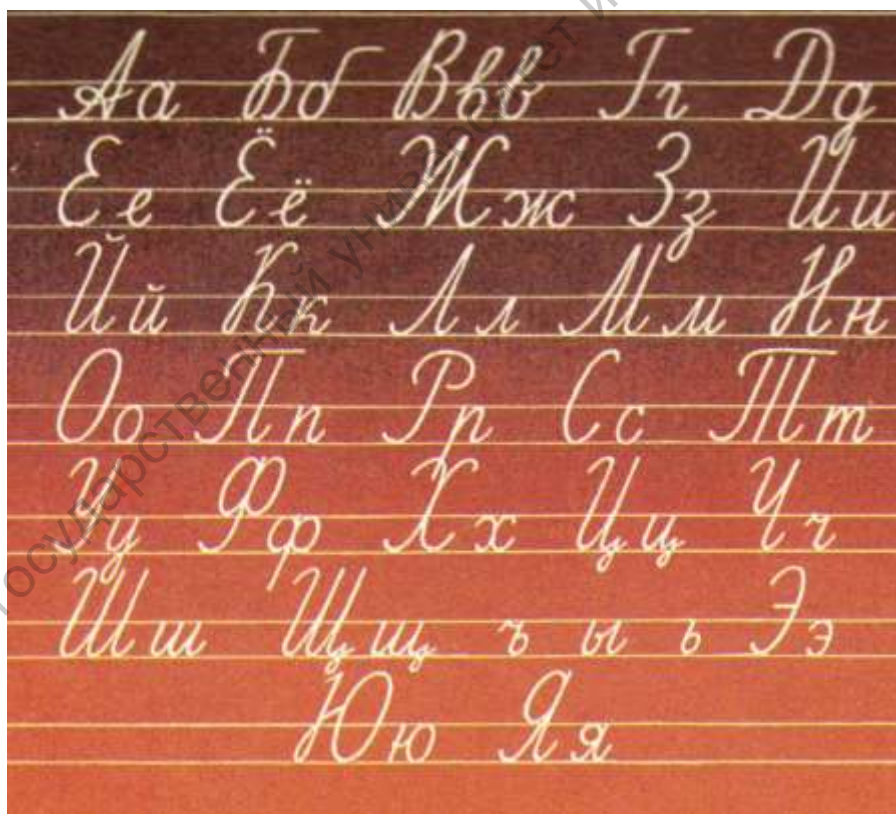 Аа Бб Ввв Гг Дд
Ее Ёё Жж Зз Ии
Йй Кк Лл Мм Нн
Оо Пп Рр Сс Тт
Уу Фф Хх Цц Чч
Шш Щщ ъ ы ь Ээ
Юю Яя
государственный университет и